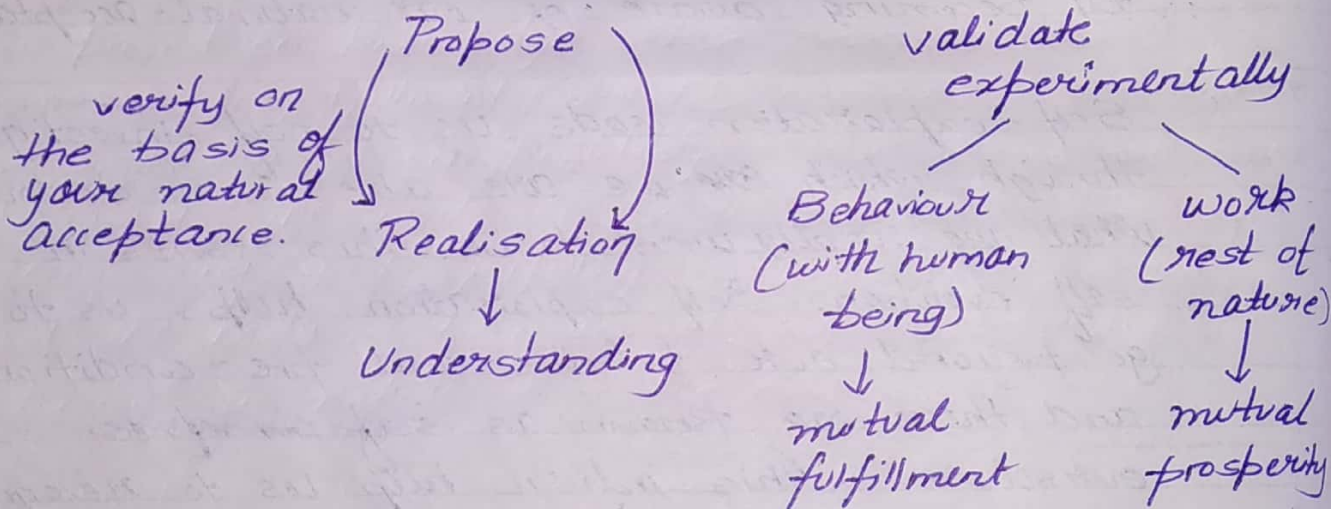 Propose
verify on
the basis of
your natural
acceptance.
Realisation
Understanding
validate
experimentally
Behaviour
(with human
being)
mutual
fulfillment
work
(rest of
nature)
mutual
prosperity